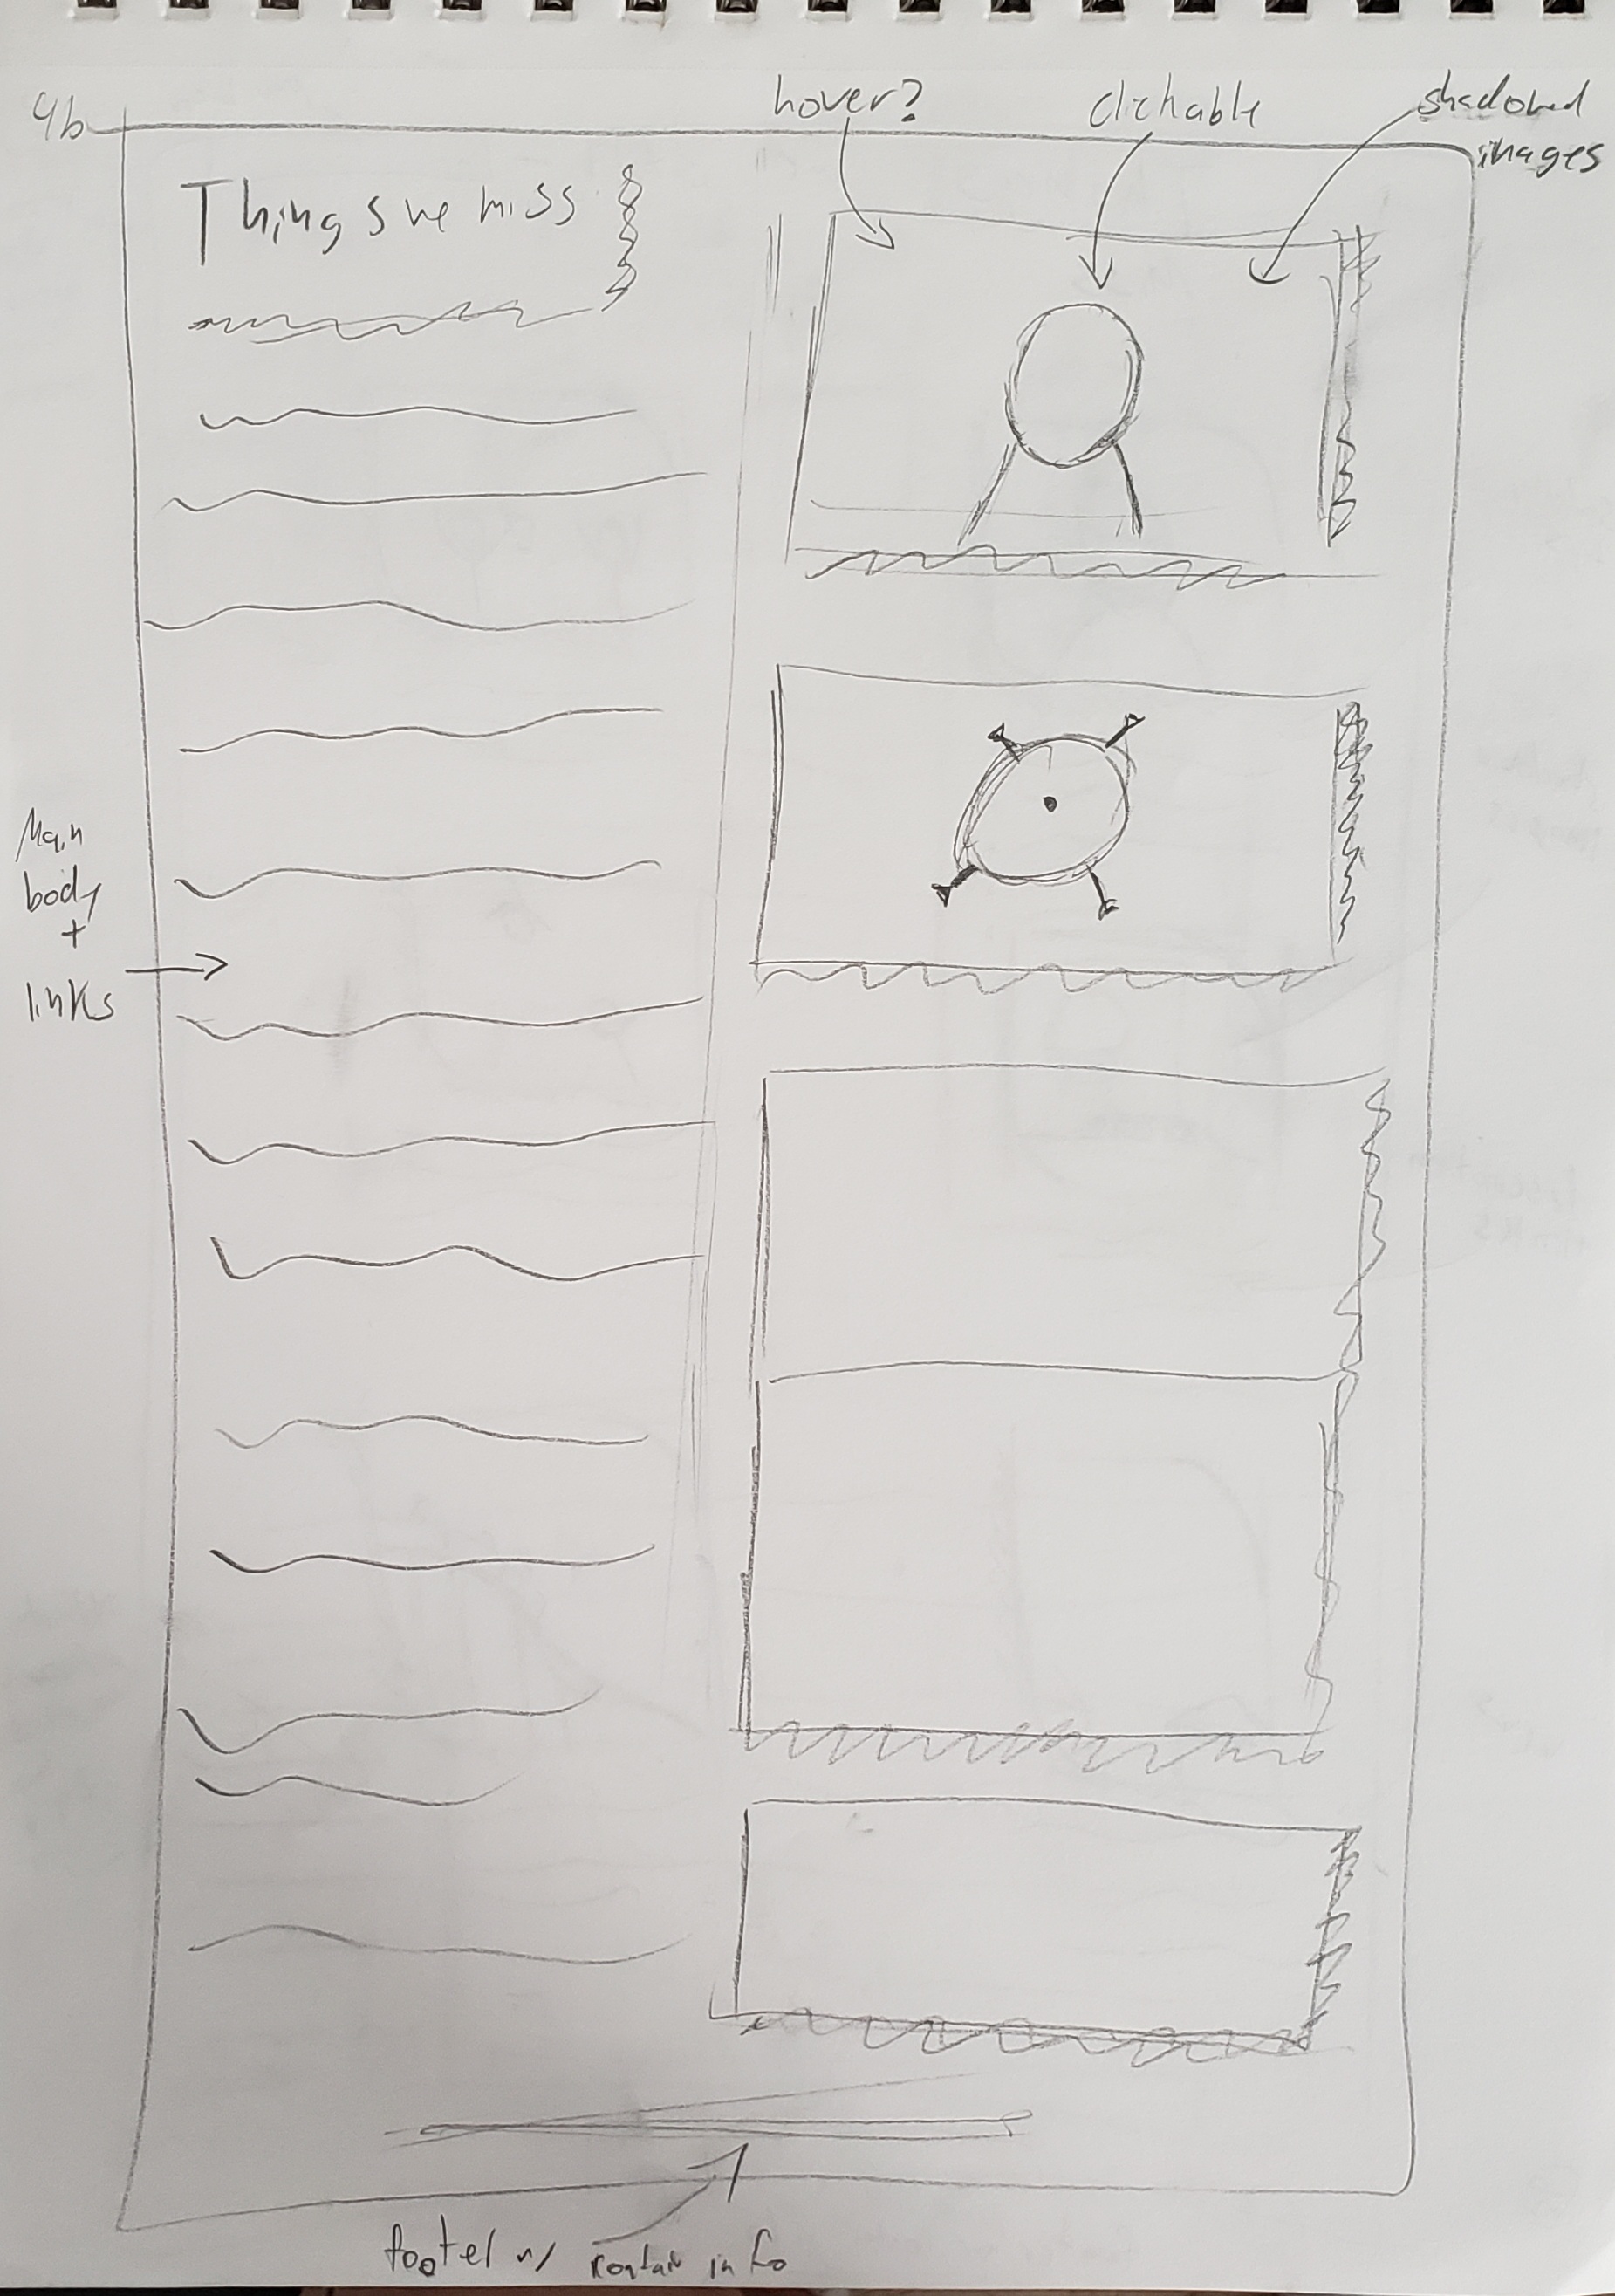 4b
hover?
clickable
shadowed
images
Things we miss
Main
body
+
links
footer w/ contain info